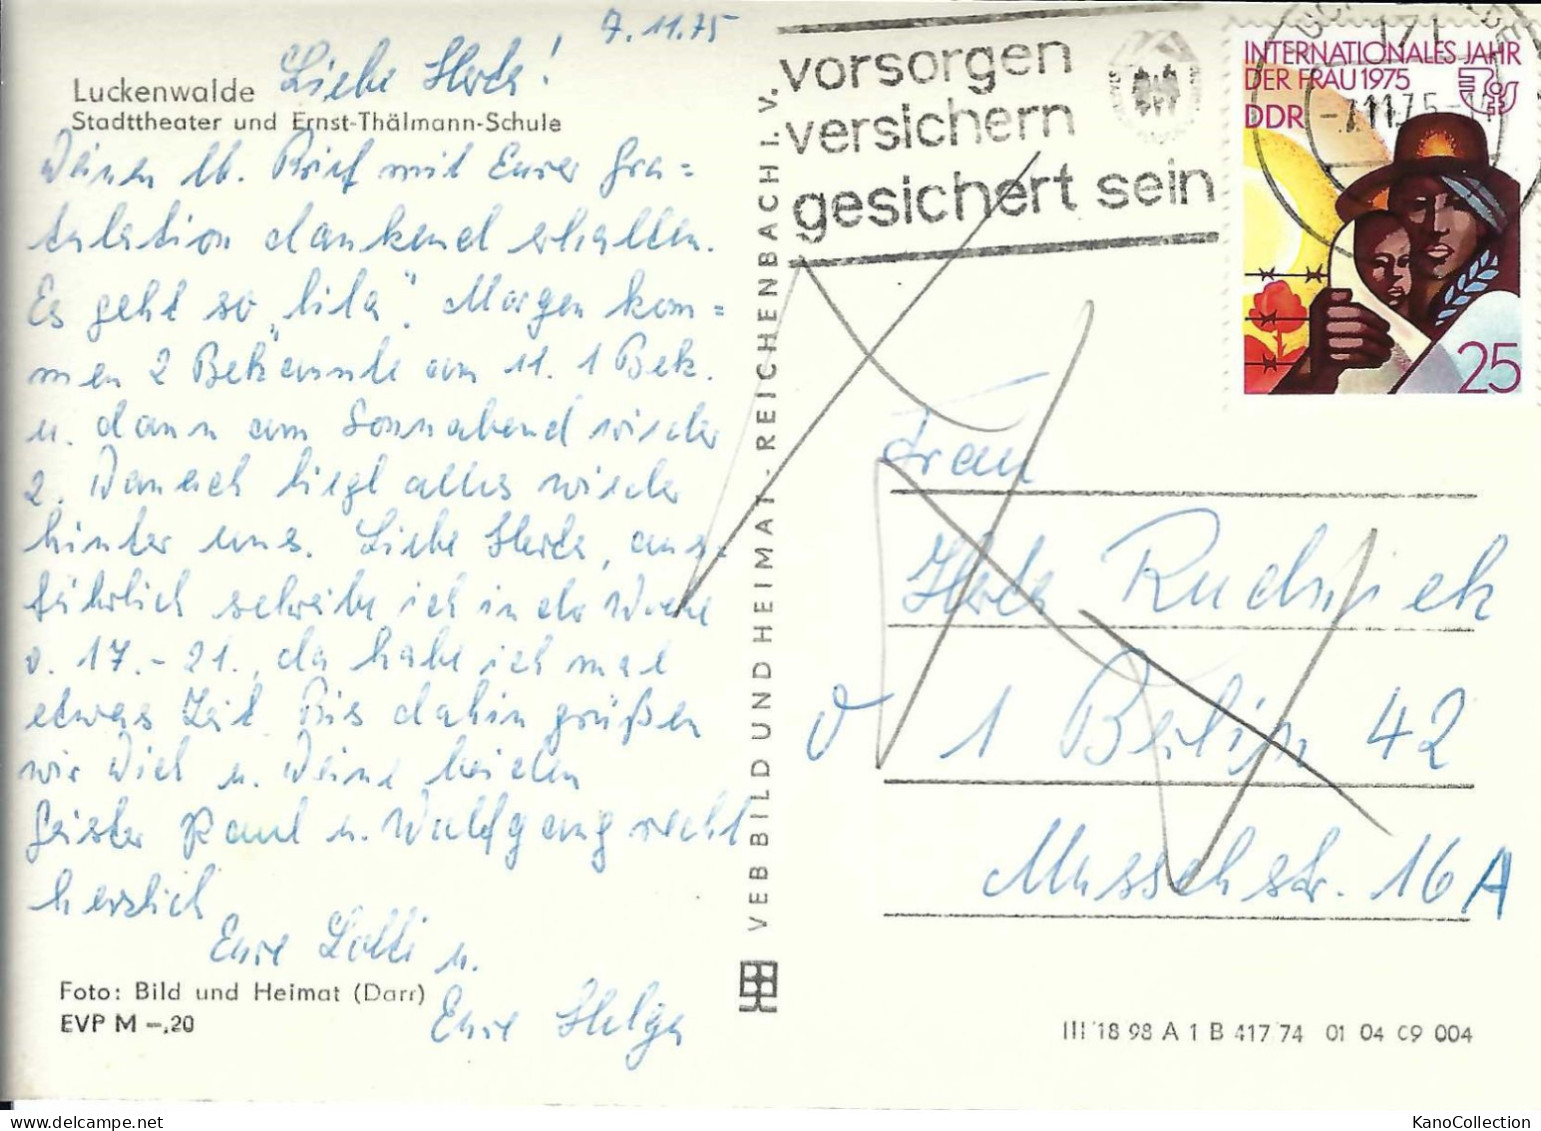 7.11.75
Liebe Herta!
Luckenwalde
Stadttheater und Ernst-Thälmann-Schule
Deinen lb. Brief mit Eurer Gra=
tulation dankend erhalten.
Es geht so „lila“. Morgen kom=
men 2 Bekannte am 11. 1 Bek.
u. dann am Sonnabend wieder
2. Danach liegt alles wieder
hinter uns. Liebe Herta, aus=
führlich schreibe ich in der Woche
v. 17.-21., da habe ich mal
etwas Zeit. Bis dahin grüßen
wir Dich u. Deine beiden
Geister Paul u. Wolfgang recht
herzlich
Eure Lotti u.
Eure Helga
Foto: Bild und Heimat (Darr)
EVP M -,20
VEB BILD UND HEIMAT · REICHENBACH I. V.
vorsorgen
versichern
gesichert sein
INTERNATIONALES JAHR
DER FRAU 1975
DDR
25
-7.11.75
Frau
Herta
1 Berlin 42
16A
III 18 98 A 1 B 417 74 01 04 09 004
KanoCollection